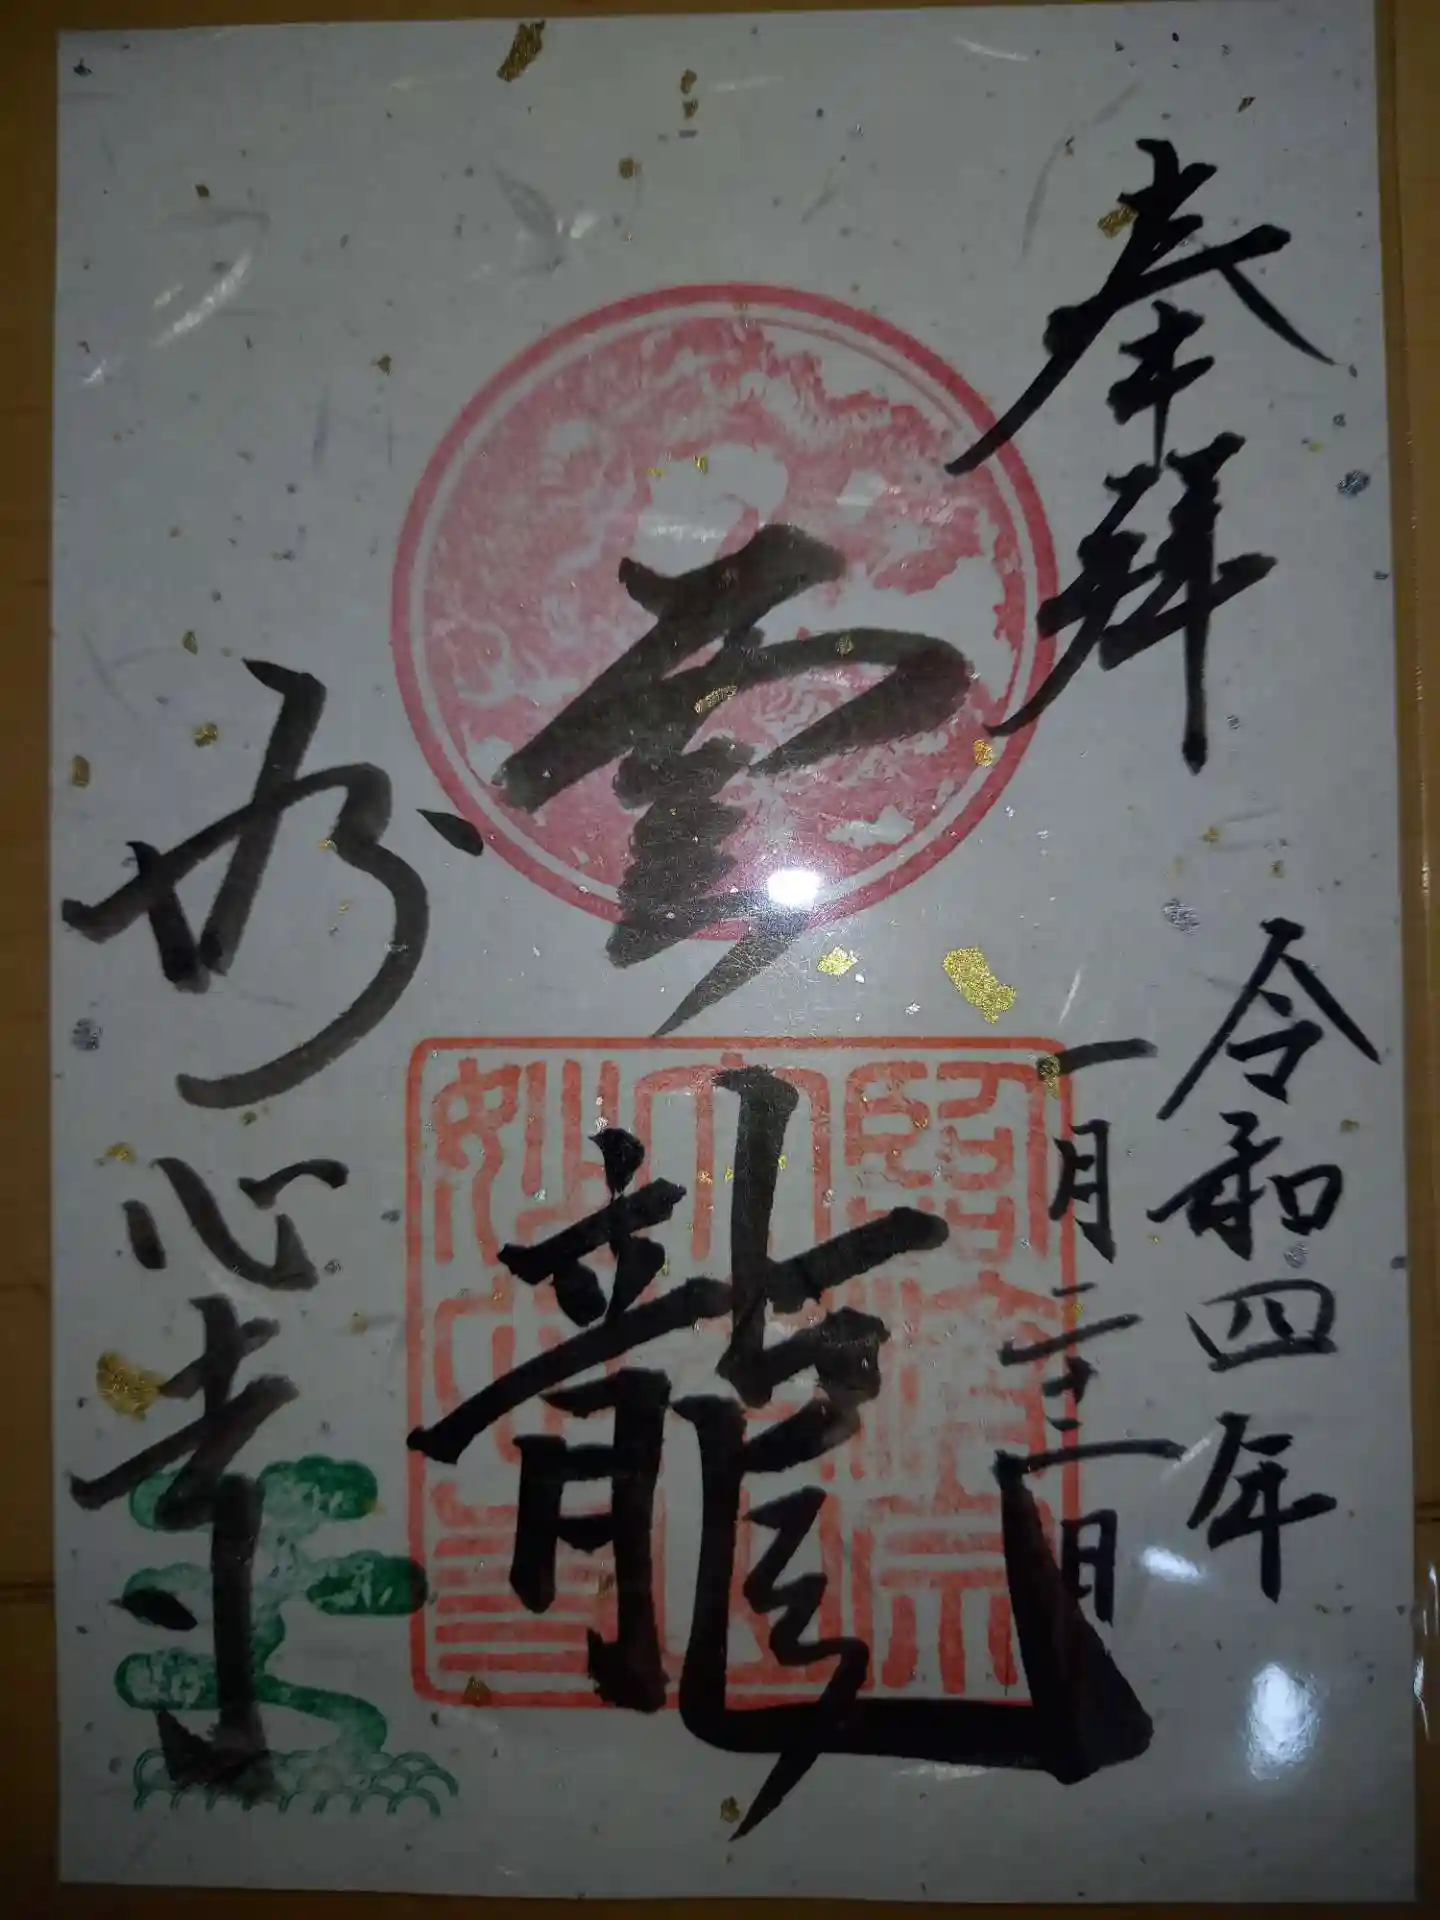 奉拝
令和四年
一月二十二日
雲龍
妙心寺